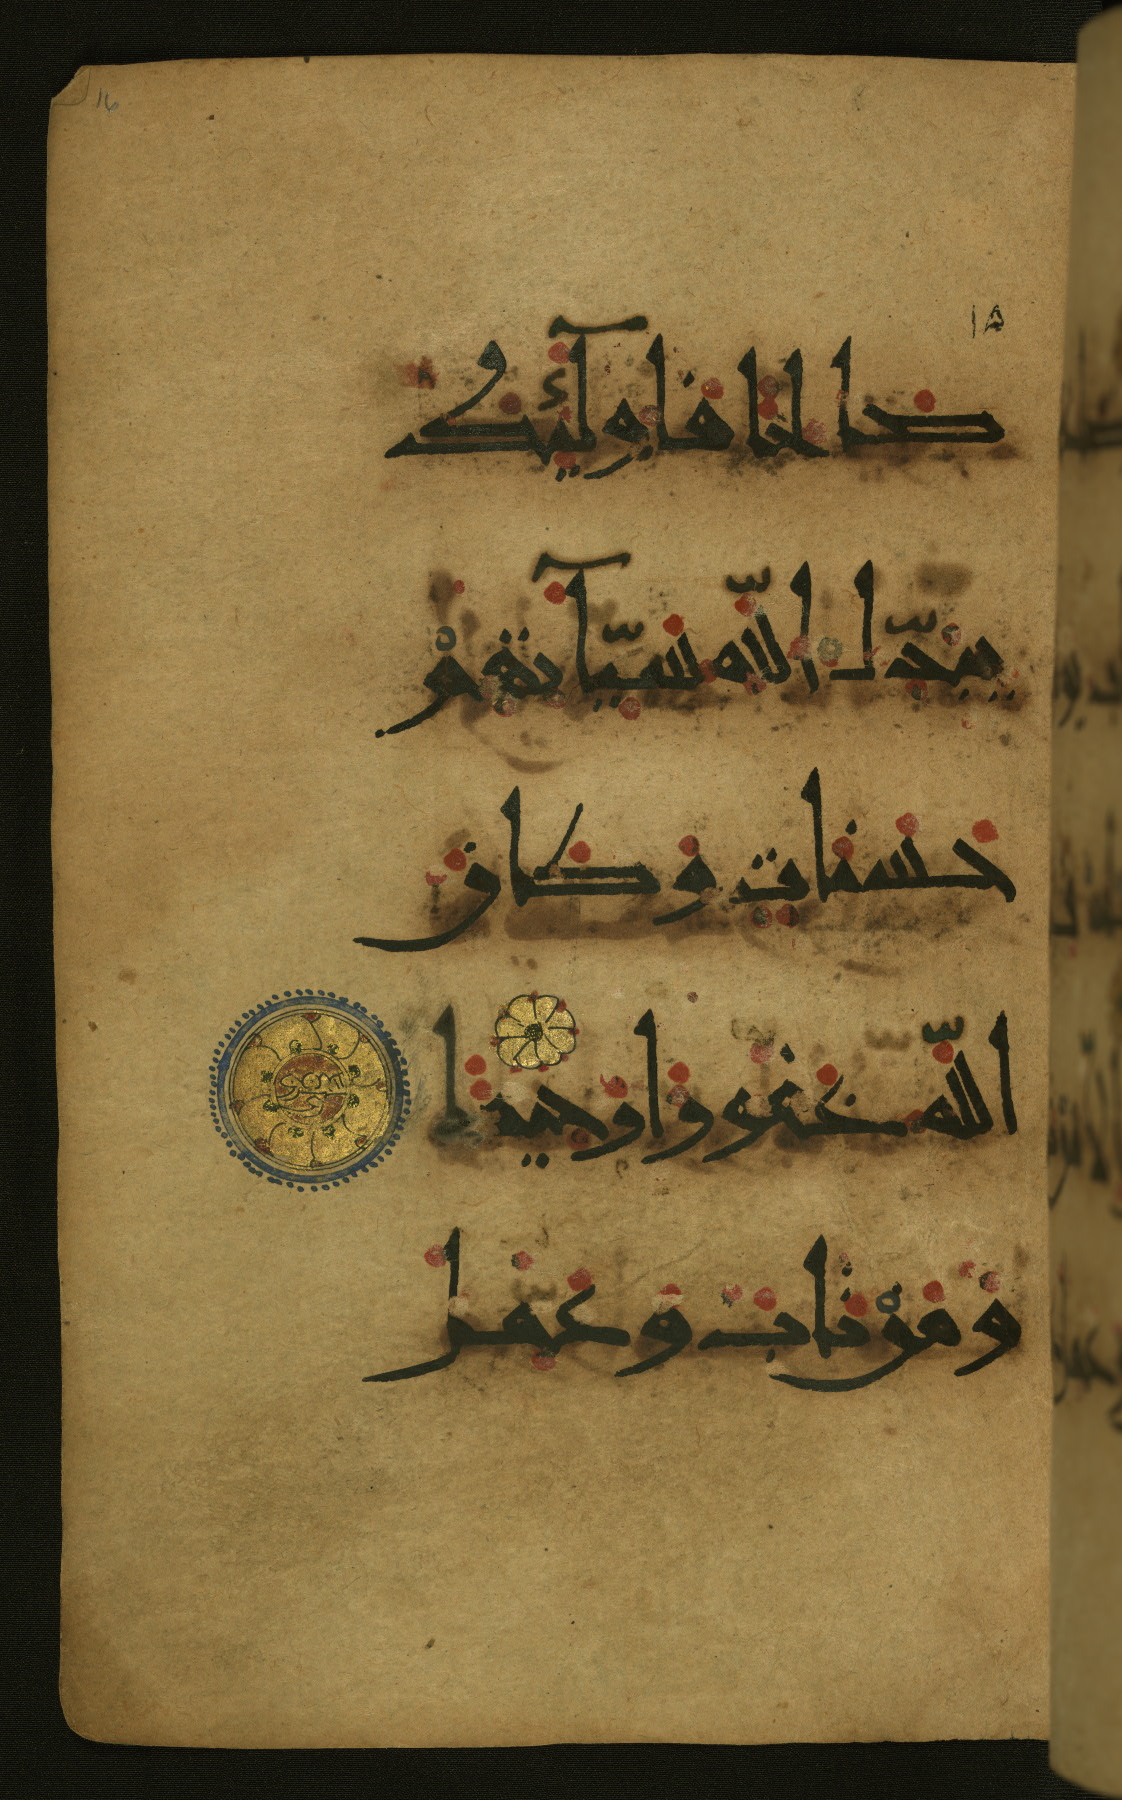 16
١٥
صالحا فاولئك
يبدّل اللّه سيّآتهم
حسنات وكان
اللّه غفورا رحيما
ومن تاب وعمل